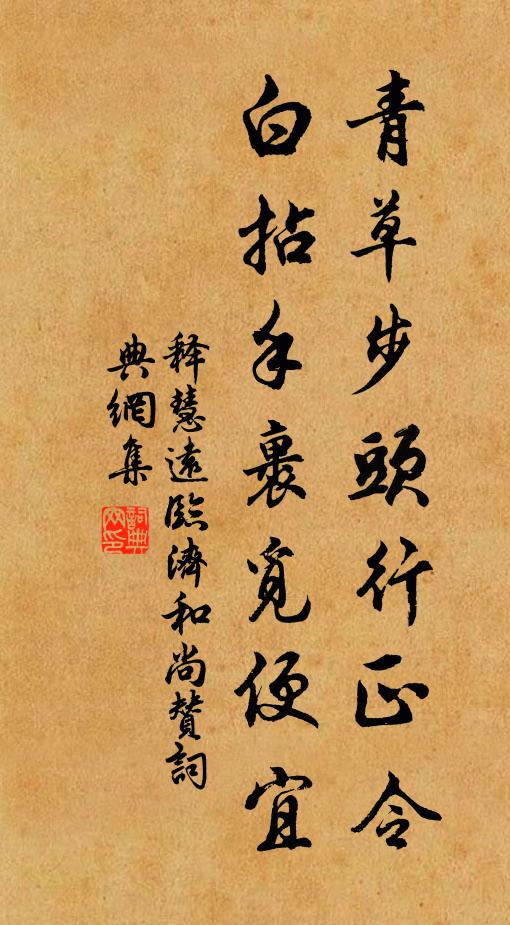 青草步頭行正令
白拈手裹覓便宜
釋慧遠臨濟和尚贊詞
典網集
詞典網印